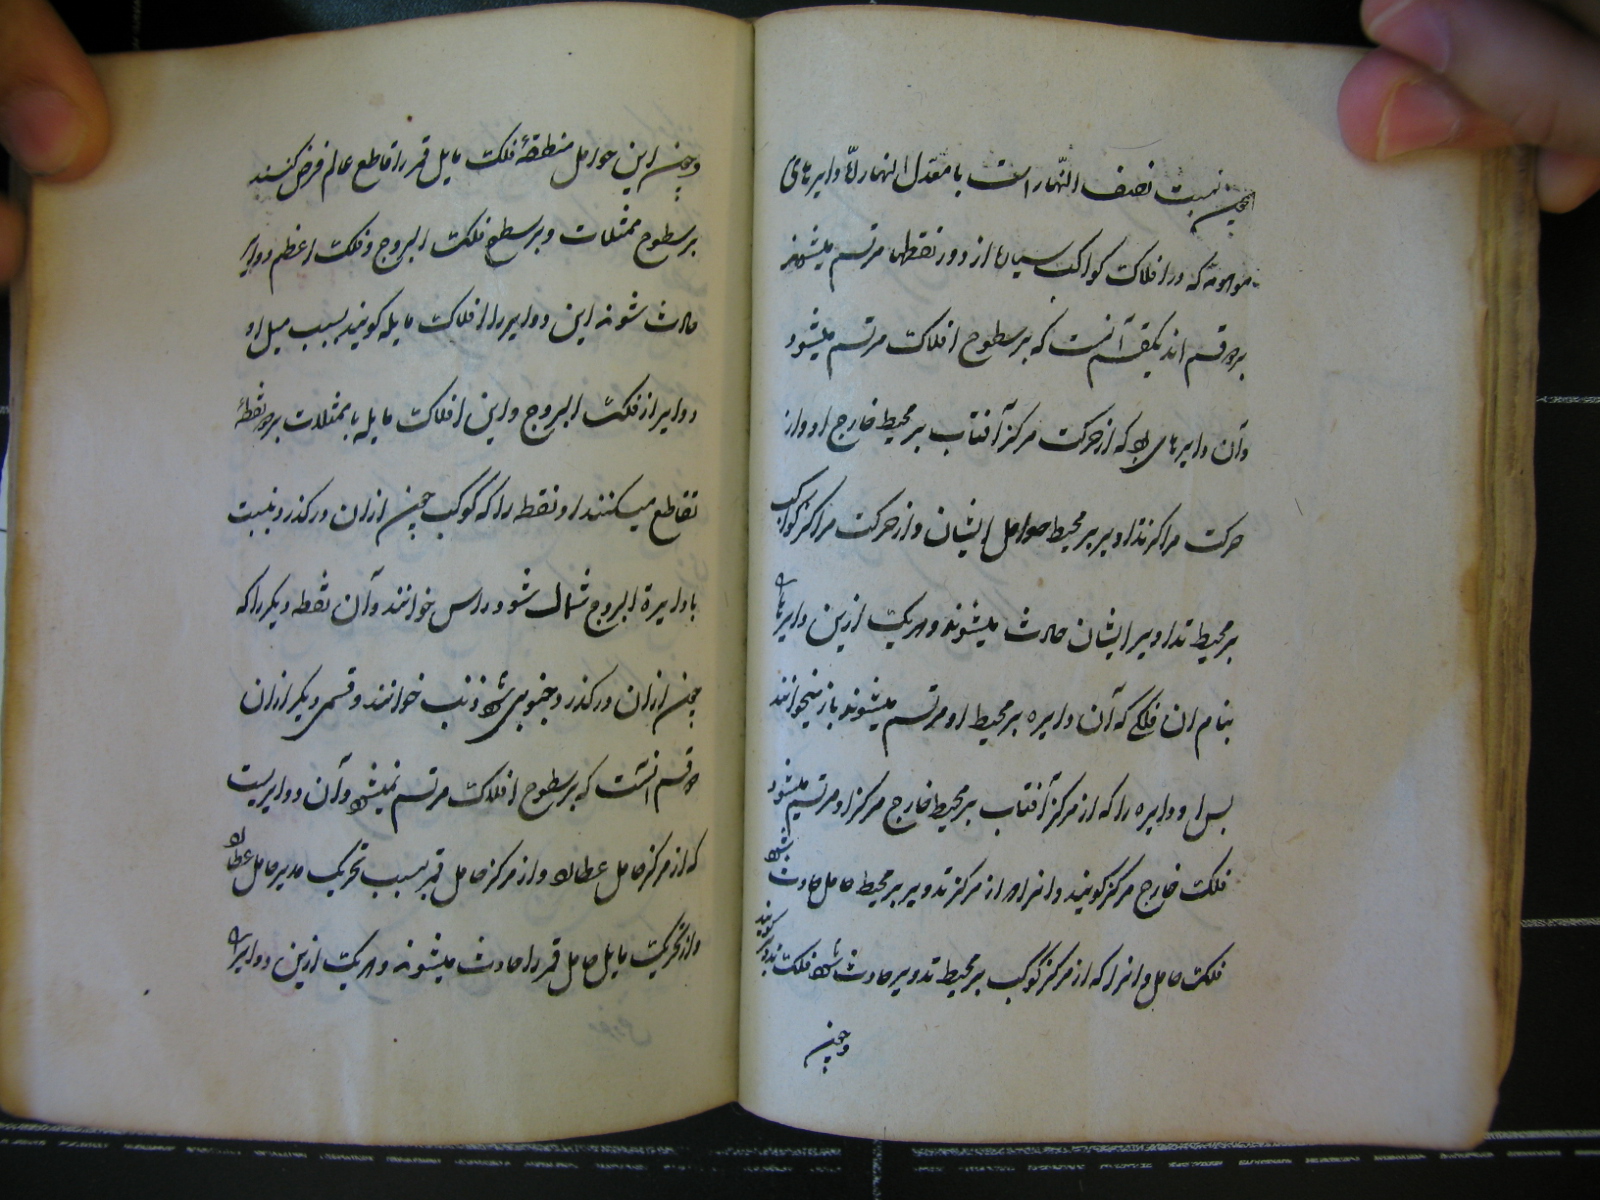 همچون نسبت نصف النهار است با معدل النهار اما دایرهای
موهومه که در افلاک کواکب سیاره از دور نقطها مرتسم میشوند
بر دو قسم اند یکقسم آنست که بر سطوح افلاک مرتسم میشود
وآن دایرهای اند که از حرکت مرکز آفتاب بر محیط خارج او واز
حرکت مراکز تداویر بر محیط حوامل ایشان واز حرکت مراکز کواکب
بر محیط تداویر ایشان حادث میشوند وهریک ازین دایرها را
بنام ان فلکی که آن دایره بر محیط او مرتسم میشوند باز میخوانند
بس او دایره را که از مرکز آفتاب بر محیط خارج مرکز او مرتسم میشود
فلک خارج مرکز گویند وانرا که از مرکز تدویر بر محیط حامل حادث شود
فلک حامل وانرا که از مرکز کوکب بر محیط تدویر حادث شود فلک تدویر گویند
وچون
وچون این حوامل منطقهٔ فلک مایل قمر را قاطع عالم فرض کنند
بر سطوح ممثلات وبر سطح فلک البروج وفلک اعظم دوایر
حادث شوند این دوایر را افلاک مایله گویند بسبب میل او
دوایر از فلک البروج واین افلاک مایله با ممثلات بر دو نقطهٔ
تقاطع میکنند او نقطه را که کوکب چون ازان در گذرد بنسبت
با دایرة البروج شمال شود راس خوانند وآن نقطه دیگر را که
چون ازان در گذرد جنوبی شود ذنب خوانند وقسمی دیگر ازان
دو قسم انست که بر سطوح افلاک مرتسم نمیشود وآن دوایریست
که از مرکز حامل عطارد واز مرکز حامل قمر بسبب تحریک مدیر حامل عطارد
واز تحریک مایل حامل قمر را حادث میشوند وهریک ازین دوایر را